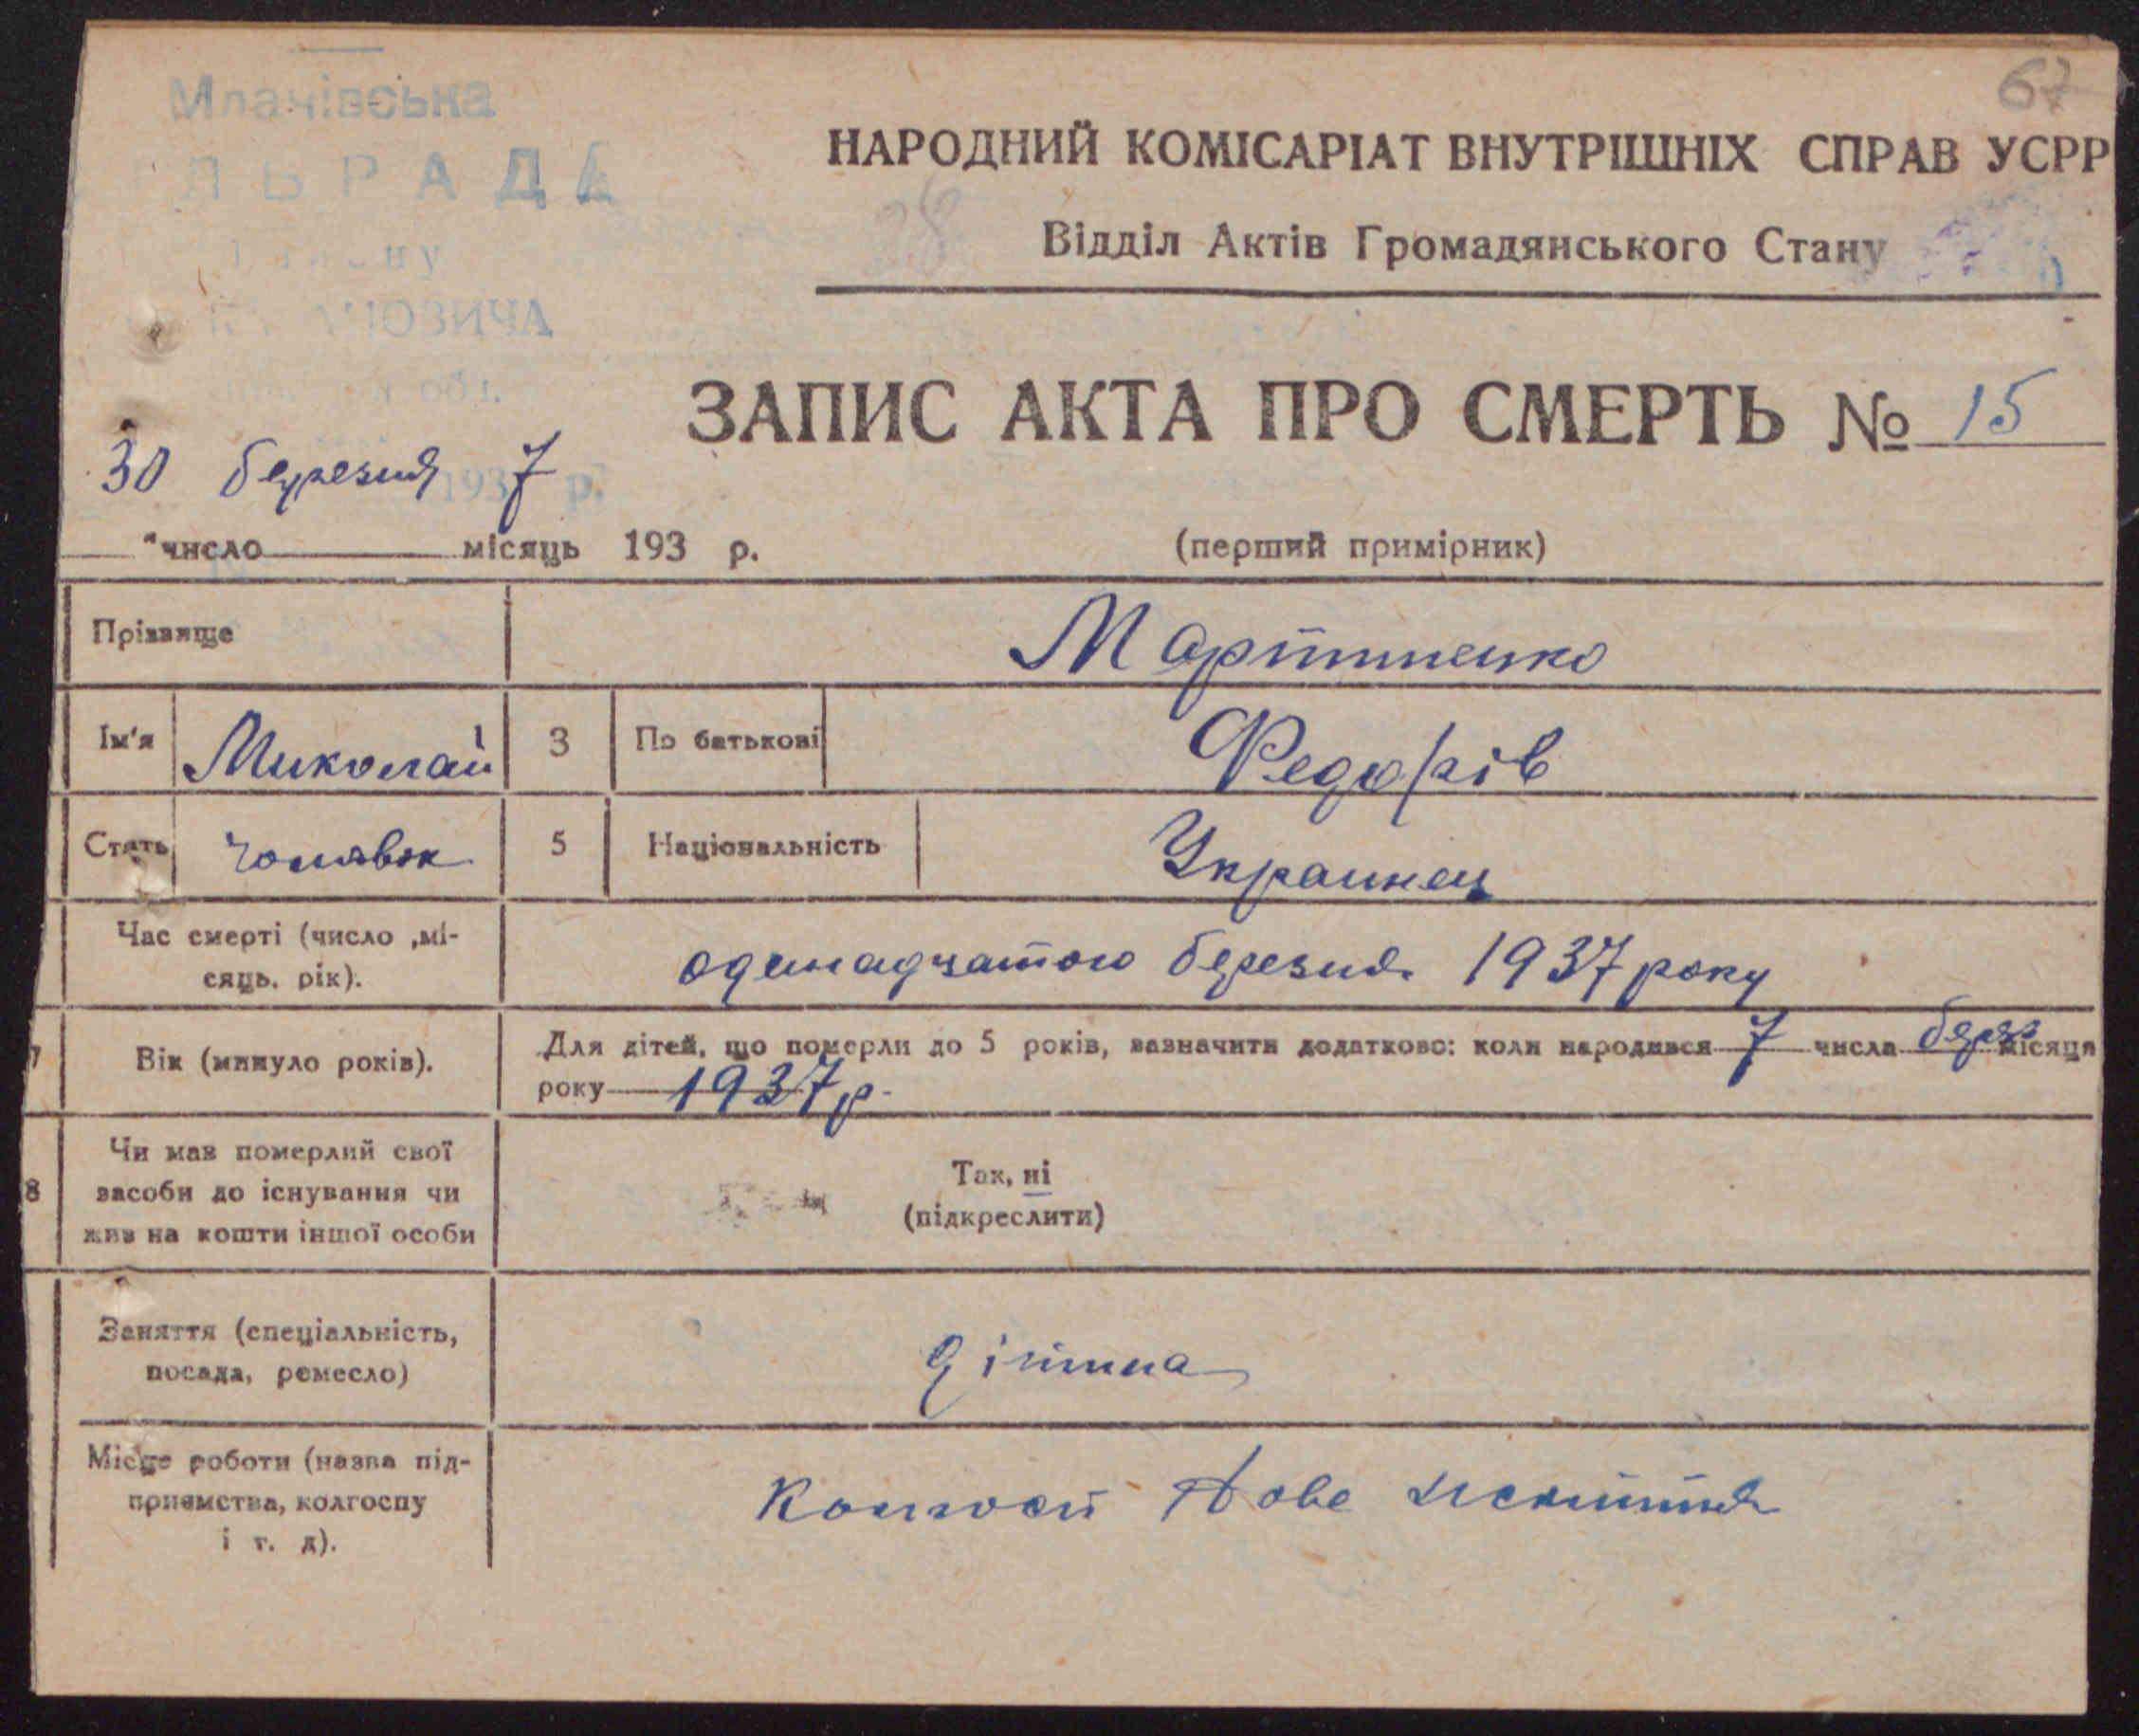 67
Млачівська
ЛЬРАДА
НАРОДНИЙ КОМІСАРІАТ ВНУТРІШНІХ СПРАВ УСРР
28
Відділ Актів Громадянського Стану
ЗАПИС АКТА ПРО СМЕРТЬ № 15
30 березня 1937 р.
число місяць 193 р. (перший примірник)
Прізвище Мартиненко
Ім'я Миколай 3 По батькові Федорів
Стать 5 Національність Украинец
Час смерті (число, мі-
сяць, рік). одинадцатого березня 1937 року
7 Вік (минуло років). Для дітей, що померли до 5 років, зазначити додатково: коли народився 7 числа берез місяця
року 1937 р.
8 Чи мав померлий свої
засоби до існування чи
жив на кошти іншої особи
Так, ні
(підкреслити)
Заняття (спеціальність,
посада, ремесло) дітина
Місце роботи (назва під-
приємства, колгоспу
і т. д). Нове